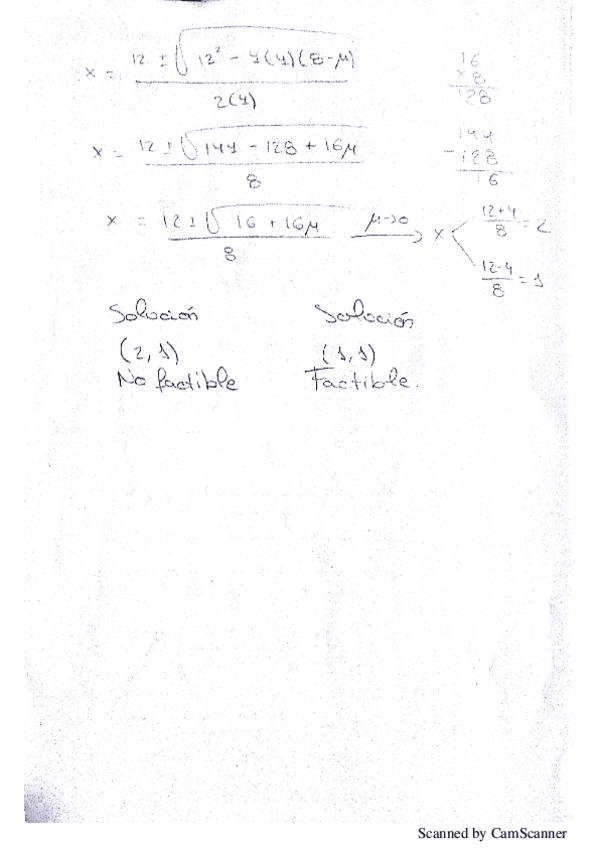 x = 12 ± √(12² - 4(4)(8-μ)) / 2(4)
16
×8
128
x = 12 ± √(144 - 128 + 16μ) / 8
144
-128
16
x = 12 ± √(16 + 16μ) / 8 μ→0 x < 12+4/8 = 2
12-4/8 = 1
Solución Solución
(2,1) (1,1)
No factible Factible.
Scanned by CamScanner